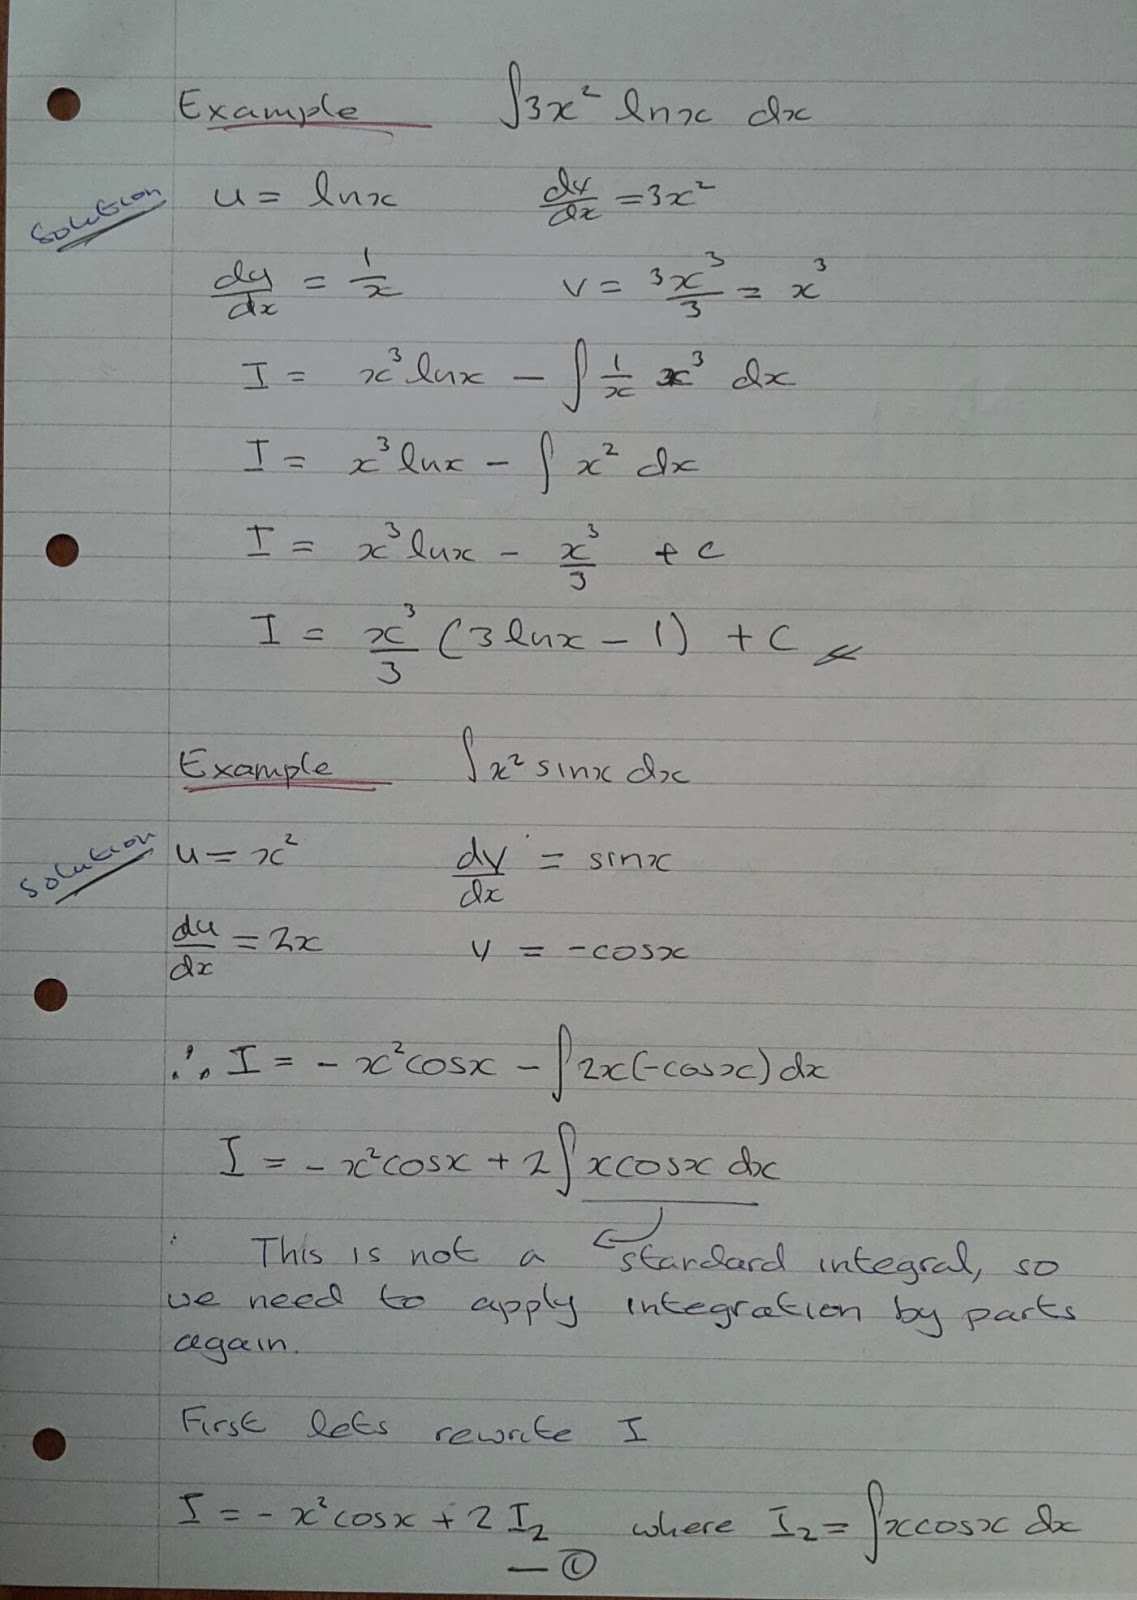 Example ∫3x² lnx dx
Solution
u = lnx dv/dx = 3x²
du/dx = 1/x v = 3x³/3 = x³
I = x³lnx - ∫ 1/x x³ dx
I = x³lnx - ∫ x² dx
I = x³lnx - x³/3 + c
I = x³/3 (3lnx - 1) + C
Example ∫x² sinx dx
Solution
u = x² dv/dx = sinx
du/dx = 2x v = -cosx
∴ I = - x²cosx - ∫2x(-cosx)dx
I = - x²cosx + 2∫xcosx dx
This is not a standard integral, so
we need to apply integration by parts
again.
First lets rewrite I
I = - x²cosx + 2 I₂ where I₂ = ∫xcosx dx
— ①